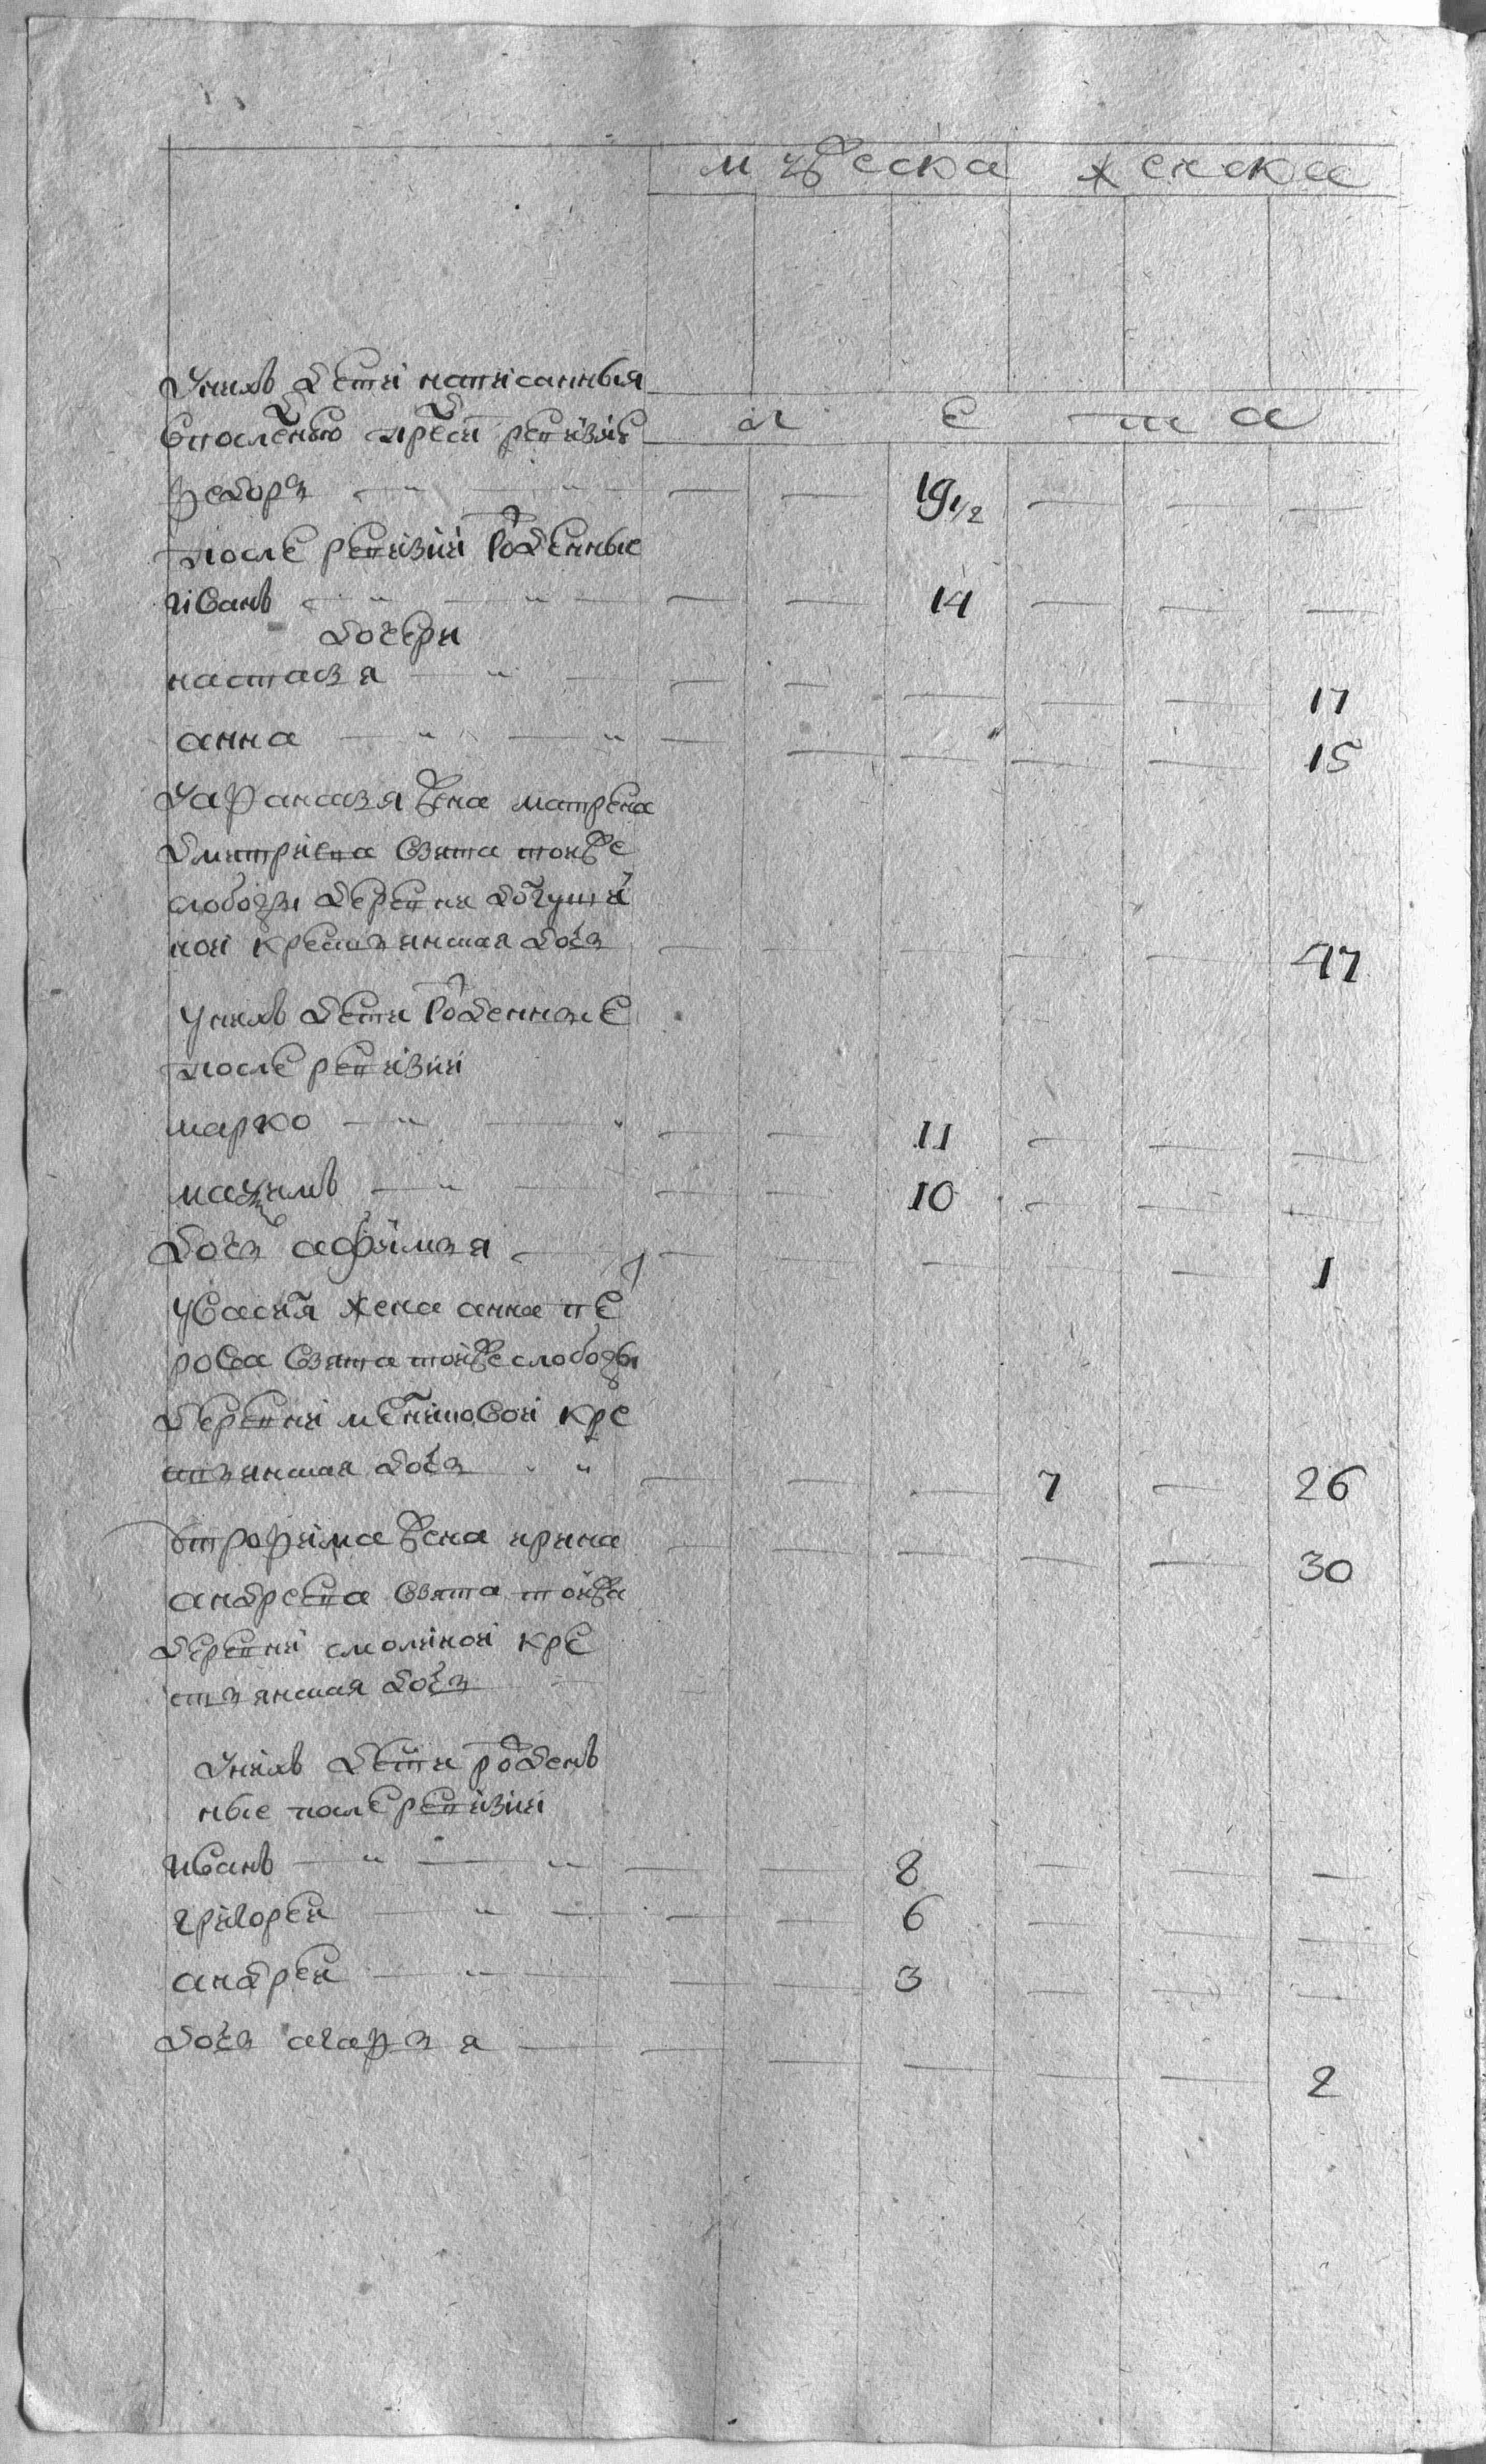 мужеска женска
у них дети написанныя
в последнюю пред сей ревизию л е т а
федор 19 1/2
после ревизии рожденные
иван 14
дочери
настасья 17
анна 15
у афанасья жена матрена
дмитриева взята тоей же
слободы деревни
ной крестьянская дочь 47
у них дети рожденные
после ревизии
марко 11
максим 10
дочь афимья 1
у василья жена анна пе
рова взята тои же слободы
деревни кре
стьянская дочь 7 26
у трофима жена ирина 30
андреева взята той же
деревни смолиной кре
стьянская дочь
у них дети рожден
ные после ревизии
иван 8
григорей 6
андрей 3
дочь агафья 2